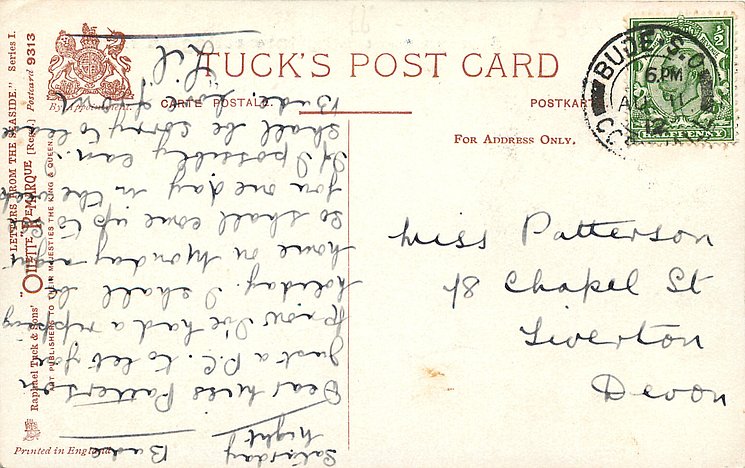 TUCK'S POST CARD
By Appointment.
CARTE POSTALE.
POSTKARTE
FOR ADDRESS ONLY.
BUDE S.O.
6 PM
AU 11
12
HALFPENNY
Miss Patterson
18 Chapel St
Tiverton
Devon
Saturday
night Bude
Dear Miss Patterson
Just a P.C. to let you
know I've had a ripping
holiday. I shall be
home on Monday and
so shall come up to
you one day in the week
if I possibly can.
Shall be sorry to leave
Bude. from
Lil
"LETTERS FROM THE SEASIDE." Series I.
Raphael Tuck & Sons' "OILETTE" REMARQUE [Regd.] Postcard 9313
ART PUBLISHERS TO THEIR MAJESTIES THE KING & QUEEN.
Printed in England